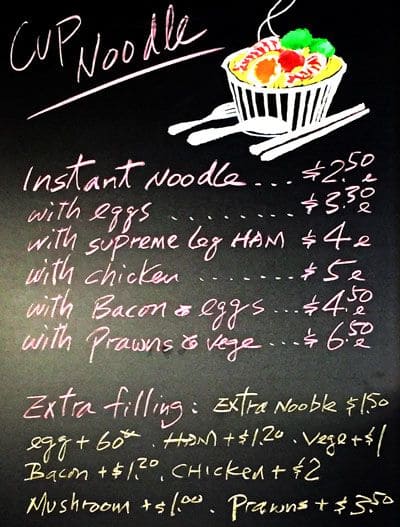 CUP Noodle
Instant Noodle... $2.50 e
with eggs ......... $3.30 e
with supreme leg HAM $4 e
with chicken ........ $5 e
with Bacon & eggs ... $4.50 e
with Prawns & vege ... $6.50 e
Extra filling: Extra Nooble $1.50
egg + 60¢ . HAM + $1.20 . Vege + $1
Bacon + $1.20 . CHicken + $2
Mushroom + $1.00 . Prawns + $3.50